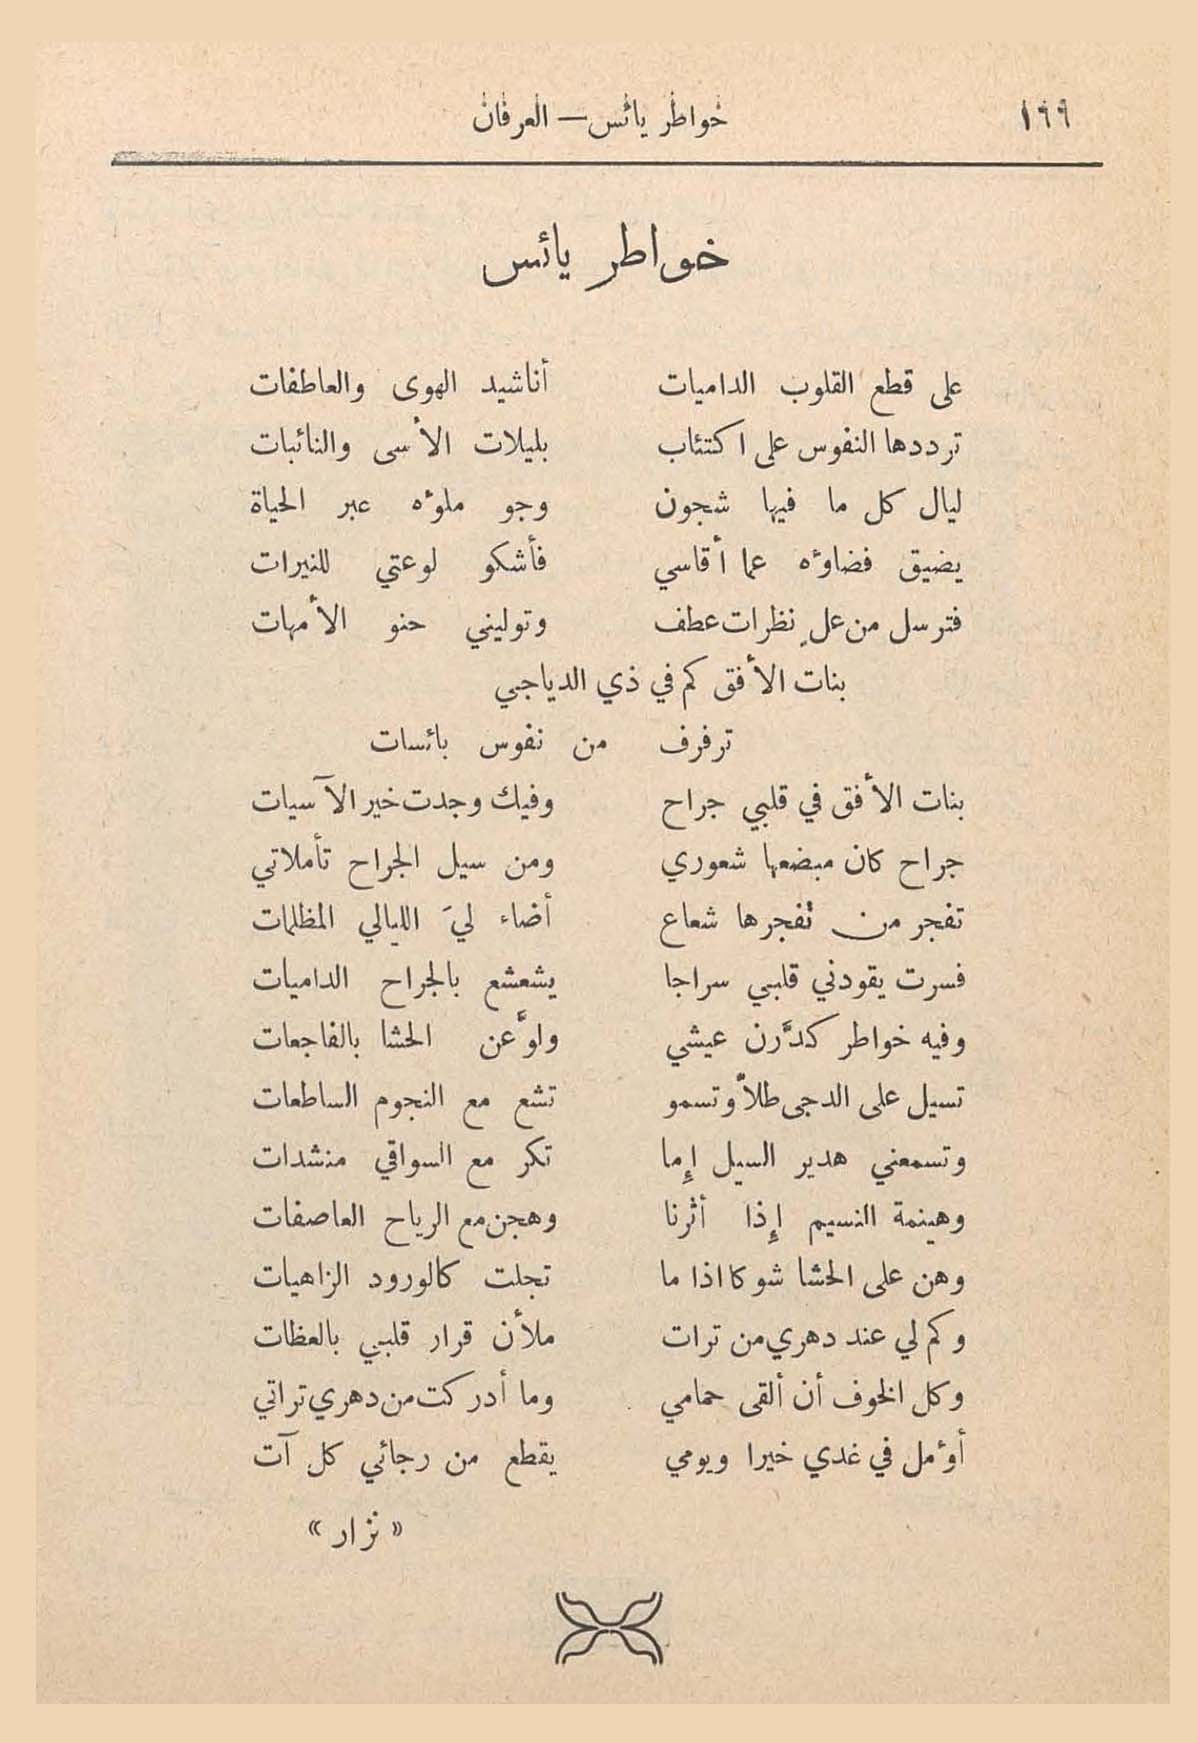 ١٦٦ خواطر يائس — العرفان
خواطر يائس
على قطع القلوب الداميات أناشيد الهوى والعاطفات
ترددها النفوس على اكتئاب بليلات الأسى والنائبات
ليال كل ما فيها شجون وجو ملؤه عبر الحياة
يضيق فضاؤه عما أقاسي فأشكو لوعتي للنيرات
فترسل من علٍ نظرات عطف وتوليني حنو الأمهات
بنات الأفق كم في ذي الدياجي
ترفرف من نفوس بائسات
بنات الأفق في قلبي جراح وفيك وجدت خير الآسيات
جراح كان مبضعها شعوري ومن سيل الجراح تأملاتي
تفجر من تفجرها شعاع أضاء ليَ الليالي المظلمات
فسرت يقودني قلبي سراجا يشعشع بالجراح الداميات
وفيه خواطر كدَّرن عيشي ولوَّعن الحشا بالفاجعات
تسيل على الدجى طلاًّ وتسمو تشع مع النجوم الساطعات
وتسمعني هدير السيل إما تكر مع السواقي منشدات
وهينمة النسيم إذا أثرنا وهجن مع الرياح العاصفات
وهن على الحشا شوكا اذا ما تجلت كالورود الزاهيات
وكم لي عند دهري من ترات ملأن قرار قلبي بالعظات
وكل الخوف أن ألقى حمامي وما أدركت من دهري تراتي
أؤمل في غدي خيرا ويومي يقطع من رجائي كل آت
« نزار »